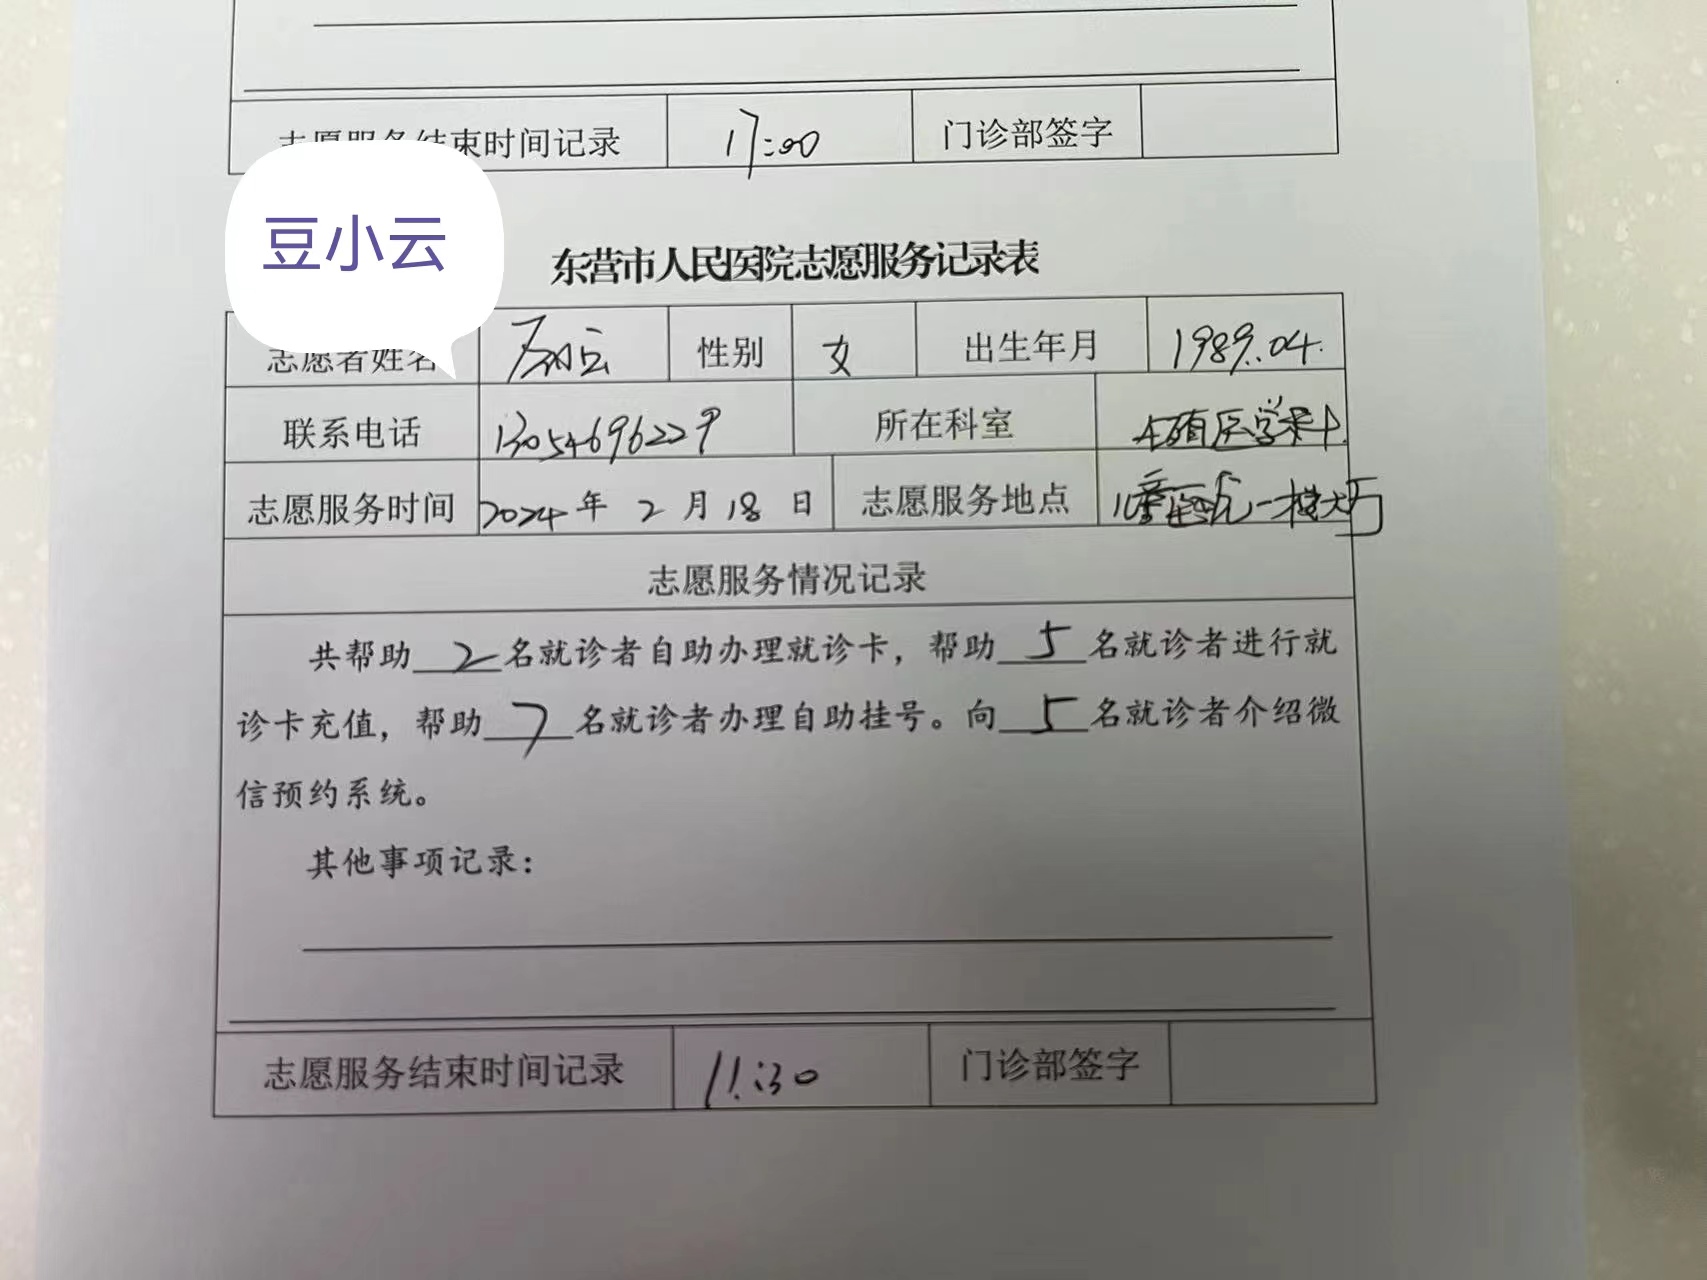 志愿服务结束时间记录 17:00 门诊部签字
豆小云
东营市人民医院志愿服务记录表
志愿者姓名 性别 女 出生年月 1989.04.
联系电话 13054696229 所在科室
志愿服务时间 2024年2月18日 志愿服务地点 儿童医院一楼大厅
志愿服务情况记录
共帮助2名就诊者自助办理就诊卡，帮助5名就诊者进行就
诊卡充值，帮助7名就诊者办理自助挂号。向5名就诊者介绍微
信预约系统。
其他事项记录：
志愿服务结束时间记录 11:30 门诊部签字